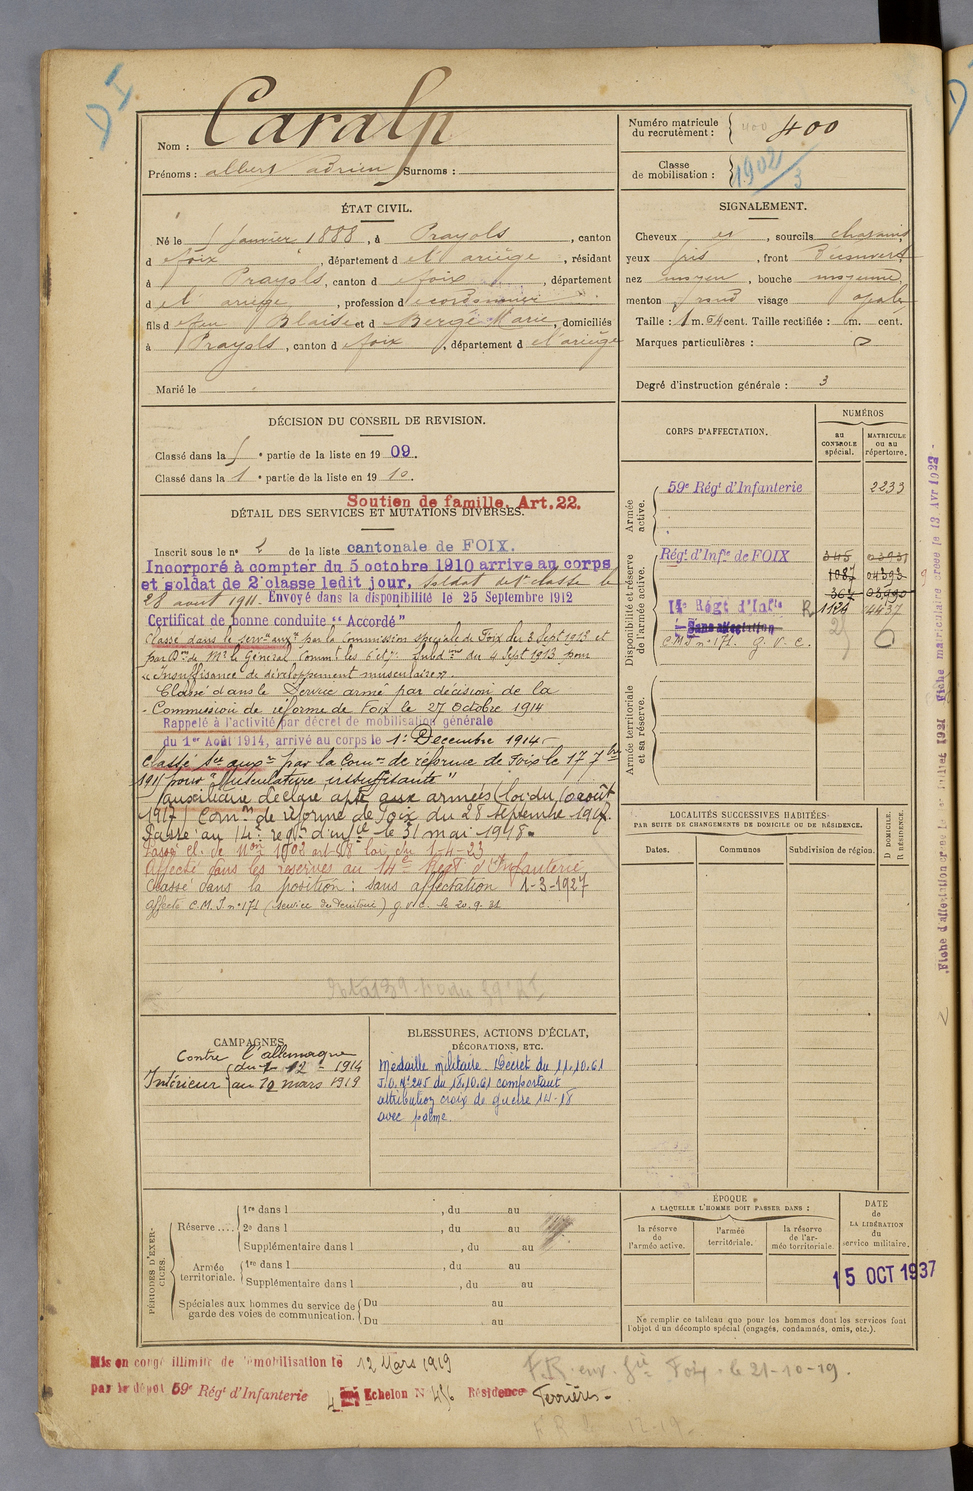 DI
Nom : Caralp
Prénoms : albert adrien Surnoms :
Numéro matricule du recrutement : 400
Classe de mobilisation : 1902/3
ÉTAT CIVIL.
Né le 5 janvier 1888, à Prayols, canton
d foix, département d e l'ariège, résidant
à Prayols, canton d e foix, département
d e l'ariège, profession d e cordonnier
fils d e feu Blaise et d e Bergé Marie, domiciliés
à Prayols, canton d e foix, département d e l'ariège
Marié le
SIGNALEMENT.
Cheveux et, sourcils chatains
yeux gris, front Découvert
nez moyen, bouche moyenne
menton rond visage ovale
Taille : 1 m. 64 cent. Taille rectifiée : 1 m. cent.
Marques particulières :
Degré d'instruction générale : 3
DÉCISION DU CONSEIL DE REVISION.
Classé dans la 5e partie de la liste en 1909.
Classé dans la 1e partie de la liste en 1910.
Soutien de famille. Art. 22.
DÉTAIL DES SERVICES ET MUTATIONS DIVERSES.
Inscrit sous le n° 2 de la liste cantonale de FOIX.
Incorporé à compter du 5 octobre 1910 arrivé au corps
et soldat de 2e classe ledit jour, soldat de 1e classe le
28 aout 1911. Envoyé dans la disponibilité le 25 Septembre 1912
Certificat de bonne conduite "Accordé"
Classé dans le serv. auxre par la Commission spéciale de Foix du 3 Sept 1913 et
par Don de Mr le Général Commt les 6e et 7e Subdons du 4 Sept 1913 pour
"Insuffisance de développement musculaire".
Classé dans le Service armé par décision de la
Commission de réforme de Foix le 27 Octobre 1914
Rappelé à l'activité par décret de mobilisation générale
du 1er Août 1914, arrivé au corps le 1er Décembre 1914.
Classé Sce auxre par la Comon de réforme de Foix le 17 7bre
1915 pour "Musculature insuffisante"
auxiliaire déclaré apte aux armées (loi du 10 août
1917) Comon de réforme de Foix du 28 septembre 1917.
Passé au 14e regt d'infie le 31 mai 1918.
Passé cl. de Mon 1902 art 58 loi du 1-4-23
Affecté dans les réserves au 14e Regt d'Infanterie
Classé dans la position : sans affectation 1-3-1927
Affecté C.M.I n° 171 (service du territoire) g.v.c. le 20.9.31
CORPS D'AFFECTATION.
NUMÉROS
au CONTROLE spécial.
MATRICULE ou au répertoire.
Armée active.
59e Régt d'Infanterie 2233
Disponibilité et réserve de l'armée active.
Régt d'Infie de FOIX 345 03931
1087 04393
367 03990
14e Régt d'Infie R. 1124 4437
Sans affectation
C.M.I n° 171. g.v.c.
Armée territoriale et sa réserve.
LOCALITÉS SUCCESSIVES HABITÉES
PAR SUITE DE CHANGEMENTS DE DOMICILE OU DE RÉSIDENCE.
Dates. Communes Subdivision de région.
D DOMICILE.
R RÉSIDENCE.
CAMPAGNES.
Contre l'allemagne
Intérieur du 1 12 1914
au 12 mars 1919
BLESSURES, ACTIONS D'ÉCLAT,
DÉCORATIONS, ETC.
Médaille militaire. Décret du 11.10.61
J.O. N° 245 du 18.10.61 comportant
attribution croix de guerre 14-18
avec palme.
PÉRIODES D'EXERCICES.
Réserve ....
1re dans l , du au
2e dans l , du au
Supplémentaire dans l , du au
Armée territoriale.
1re dans l , du au
Supplémentaire dans l , du au
Spéciales aux hommes du service de garde des voies de communication.
Du au
Du au
ÉPOQUE
A LAQUELLE L'HOMME DOIT PASSER DANS :
la réserve de l'armée active.
l'armée territoriale.
la réserve de l'armée territoriale.
DATE de LA LIBÉRATION du service militaire.
15 OCT 1937
Ne remplir ce tableau que pour les hommes dont les services font
l'objet d'un décompte spécial (engagés, condamnés, omis, etc.).
Mis en congé illimité de démobilisation le 12 Mars 1919
par le dépôt 59e Régt d'Infanterie 4 Echelon N° 456 Résidence Ferrières
F.R. env. Gie Foix. le 21-10-19.